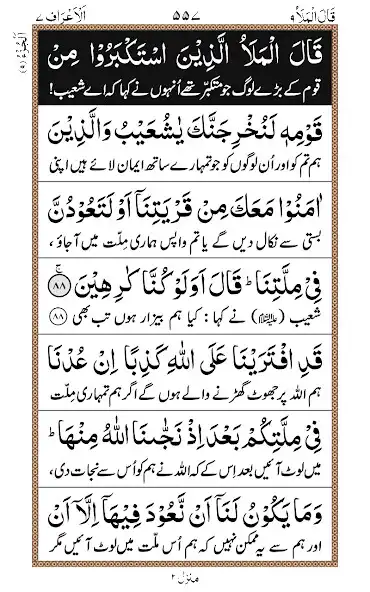 قَالَ الۡمَلَاُ ۹
۵۵۷
اَلۡاَعۡرَاف ۷
اَلۡجُزۡءُ (۹)
قَالَ الۡمَلَاُ الَّذِيۡنَ اسۡتَكۡبَرُوۡا مِنۡ
قوم کے بڑے لوگ جو متکبّر تھے اُنہوں نے کہا کہ اے شعیب!
قَوۡمِهٖ لَنُخۡرِجَنَّكَ يٰشُعَيۡبُ وَالَّذِيۡنَ
ہم تم کو اور اُن لوگوں کو جو تمہارے ساتھ ایمان لائے ہیں اپنی
اٰمَنُوۡا مَعَكَ مِنۡ قَرۡيَتِنَاۤ اَوۡ لَتَعُوۡدُنَّ
بستی سے نکال دیں گے یا تم واپس ہماری مِلّت میں آجاؤ ،
فِىۡ مِلَّتِنَا‌ ؕ قَالَ اَوَلَوۡ كُنَّا كٰرِهِيۡنَ ﴿۸۸﴾
شعیب (علیہ السلام) نے کہا : کیا ہم بیزار ہوں تب بھی (۸۸)
قَدِ افۡتَرَيۡنَا عَلَى اللّٰهِ كَذِبًا اِنۡ عُدۡنَا
ہم اللہ پر جھوٹ گھڑنے والے ہوں گے اگر ہم تمہاری مِلّت
فِىۡ مِلَّتِكُمۡ بَعۡدَ اِذۡ نَجّٰٮنَا اللّٰهُ مِنۡهَا‌ ؕ
میں لوٹ آئیں بعد اِس کے کہ اللہ نے ہم کو اُس سے نجات دی ،
وَمَا يَكُوۡنُ لَنَاۤ اَنۡ نَّعُوۡدَ فِيۡهَاۤ اِلَّاۤ اَنۡ
اور ہم سے یہ ممکن نہیں کہ ہم اُس ملّت میں لوٹ آئیں مگر
منزل ۲